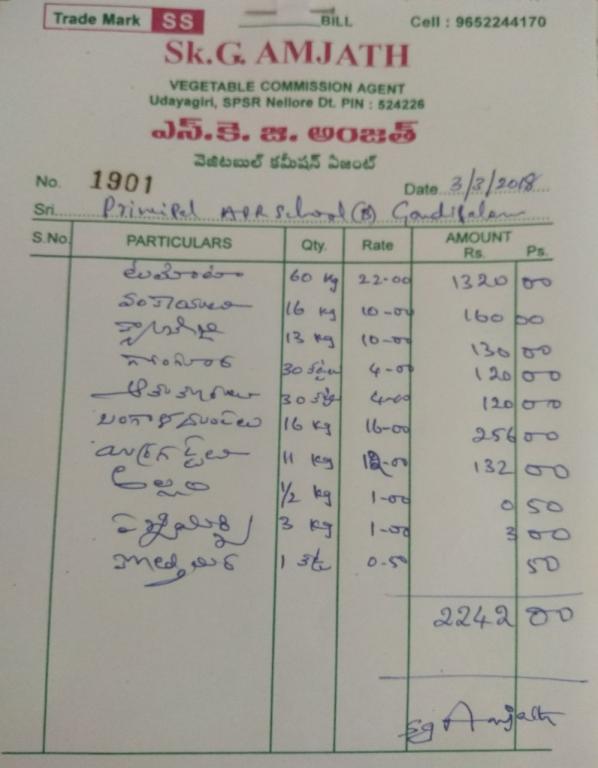 Trade Mark SS BILL Cell : 9652244170
Sk.G. AMJATH
VEGETABLE COMMISSION AGENT
Udayagiri, SPSR Nellore Dt. PIN : 524226
ఎస్.కె. జి. అంజత్
వెజిటబుల్ కమీషన్ ఏజంట్
No. 1901 Date 3/3/2018
Sri Principal APR School (B) Gandipalem
S.No. PARTICULARS Qty. Rate AMOUNT Rs. Ps.
60 kg 22-00 1320 00
వంకాయలు 16 kg 10-00 160 00
13 kg 10-00 130 00
గోంగూర 30 కట్టలు 4-00 120 00
ఆకుకూరలు 30 4-00 120 00
బంగాళదుంపలు 16 kg 16-00 256 00
11 kg 12-00 132 00
అల్లం 1/2 kg 1-00 0 50
3 kg 1-00 3 00
1 కట్ట 0-50 50
2242 00
Sg Amjath